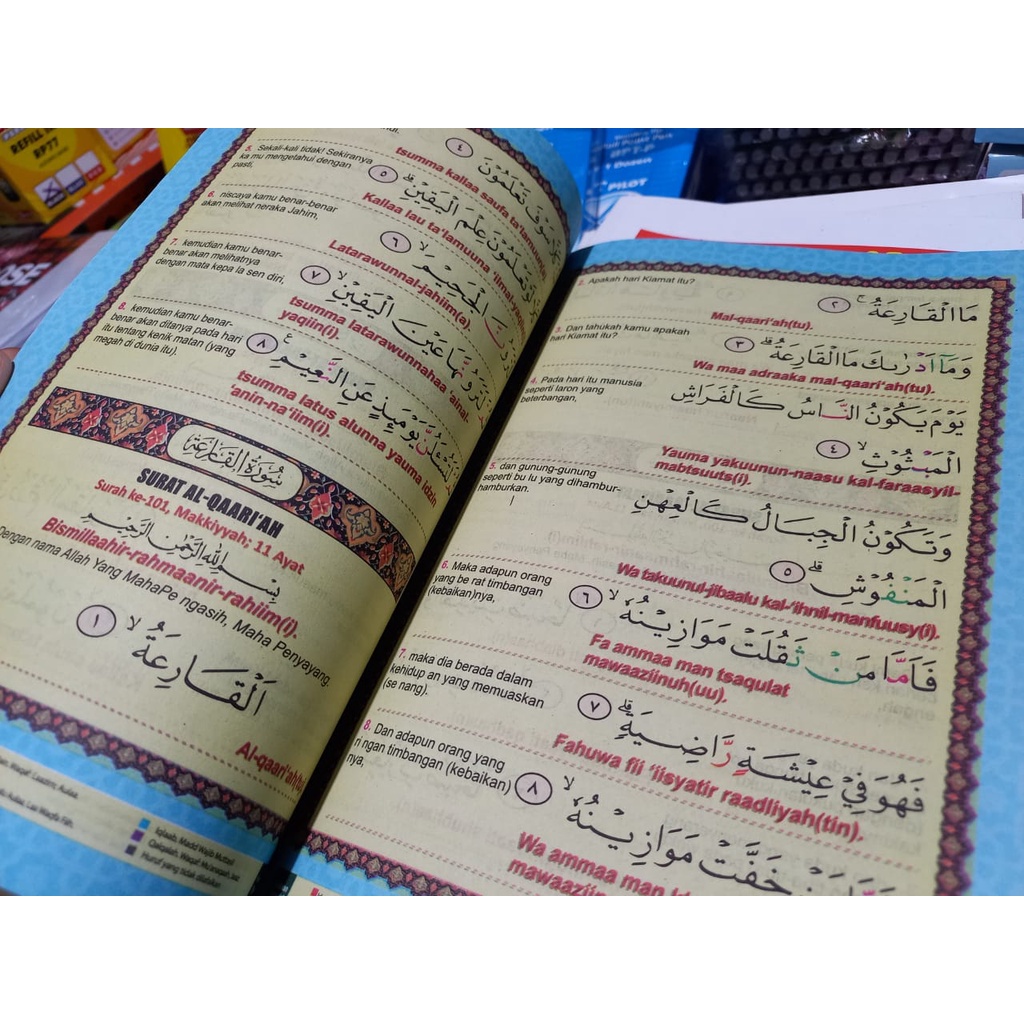 REFILL
RP77
PILOT
Dozen
OSE
٤
tsumma kallaa saufa ta'lamuuna
سَوْفَ تَعْلَمُوْنَ
5. Sekali-kali tidak! Sekiranya
ka mu mengetahui dengan
pasti,
٥
تَعْلَمُوْنَ عِلْمَ الْيَقِيْنِۗ
Kallaa lau ta'lamuuna 'ilmal-yaqiini
6. niscaya kamu benar-benar
akan melihat neraka Jahim,
٦
الْجَحِيْمَۙ
Latarawunnal-jahiim(a).
7. kemudian kamu benar-
benar akan melihatnya
dengan mata kepa la sen diri,
٧
عَيْنَ الْيَقِيْنِۙ
tsumma latarawunnahaa 'ainal-
yaqiin(i)
8. kemudian kamu benar-
benar akan ditanya pada hari
itu tentang kenik matan (yang
megah di dunia itu).
٨
يَوْمَىِٕذٍ عَنِ النَّعِيْمِ
tsumma latus alunna yauma idzin
'anin-na'iim(i).
سُوْرَةُ الْقَارِعَةِ
SURAT AL-QAARI'AH
Surah ke-101, Makkiyyah; 11 Ayat
بِسْمِ اللّٰهِ الرَّحْمٰنِ الرَّحِيْمِ
Bismillaahir-rahmaanir-rahiim(i).
Dengan nama Allah Yang MahaPe ngasih, Maha Penyayang.
اَلْقَارِعَةُۙ ١
Al-qaari'ah(tu)
Iqlaab; Madd Wajib Muttasil
Huruf yang tidak dilafalkan
2. Apakah hari Kiamat itu?
مَا الْقَارِعَةُۚ ٢
Mal-qaari'ah(tu).
3. Dan tahukah kamu apakah
hari Kiamat itu?
وَمَآ اَدْرٰىكَ مَا الْقَارِعَةُۗ ٣
Wa maa adraaka mal-qaari'ah(tu).
4. Pada hari itu manusia
seperti laron yang
beterbangan,
يَوْمَ يَكُوْنُ النَّاسُ كَالْفَرَاشِ
الْمَبْثُوْثِۙ ٤
Yauma yakuunun-naasu kal-faraasyil-
mabtsuuts(i).
5. dan gunung-gunung
seperti bu lu yang dihambur-
hamburkan.
وَتَكُوْنُ الْجِبَالُ كَالْعِهْنِ
الْمَنْفُوْشِۗ ٥
Wa takuunul-jibaalu kal-'ihnil-manfuusy(i).
6. Maka adapun orang
yang be rat timbangan
(kebaikan)nya,
فَاَمَّا مَنْ ثَقُلَتْ مَوَازِيْنُهٗۙ ٦
Fa ammaa man tsaqulat
mawaaziinuh(uu).
7. maka dia berada dalam
kehidup an yang memuaskan
(se nang).
فَهُوَ فِيْ عِيْشَةٍ رَّاضِيَةٍۗ ٧
Fahuwa fii 'iisyatir raadliyah(tin).
8. Dan adapun orang yang
ri ngan timbangan (kebaikan)
nya,
خَفَّتْ مَوَازِيْنُهٗۙ ٨
Wa ammaa man